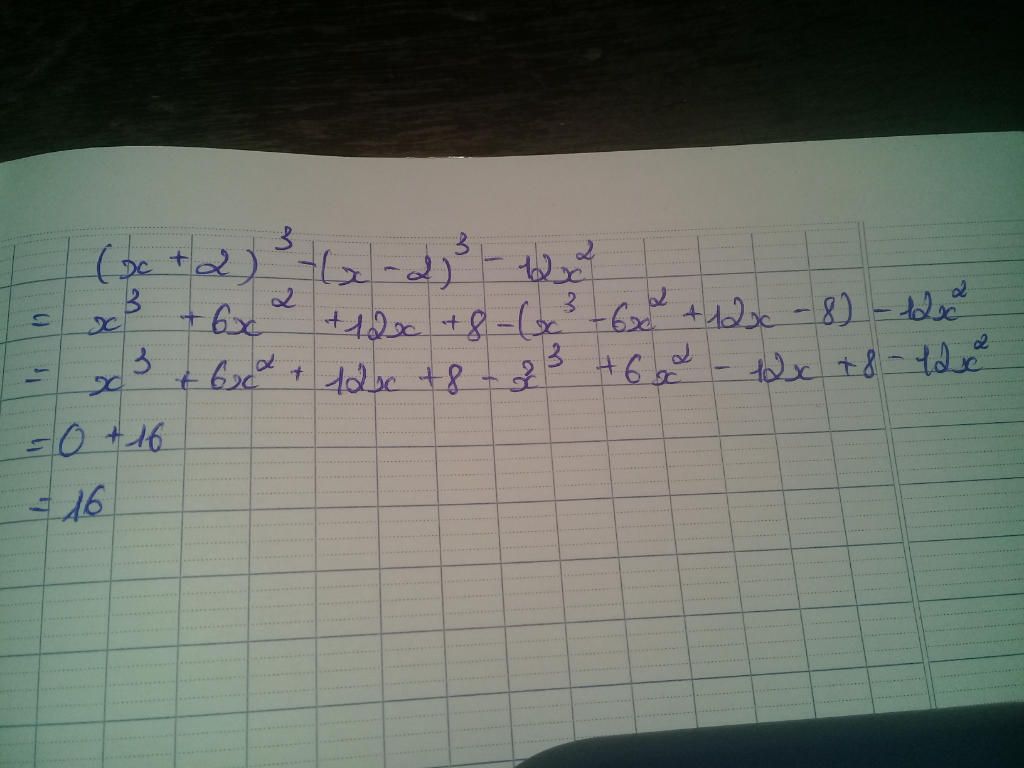 (x + 2)³ - (x - 2)³ - 12x²
= x³ + 6x² + 12x + 8 - (x³ - 6x² + 12x - 8) - 12x²
= x³ + 6x² + 12x + 8 - x³ + 6x² - 12x + 8 - 12x²
= 0 + 16
= 16